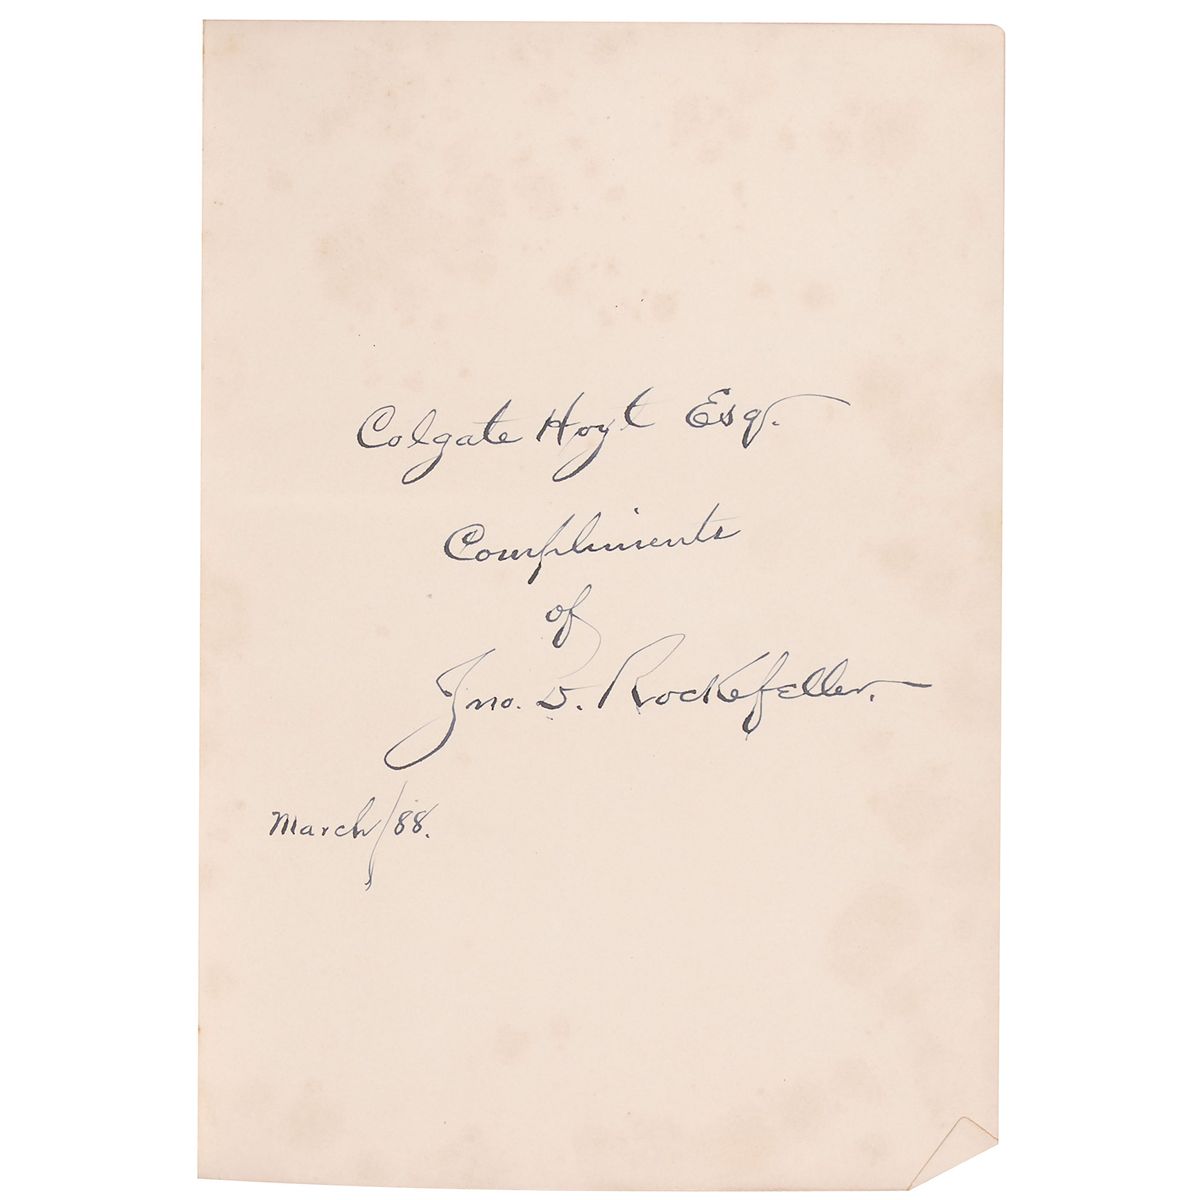 Colgate Hoyt Esq.
Compliments
of
Jno. D. Rockefeller.
March/88.